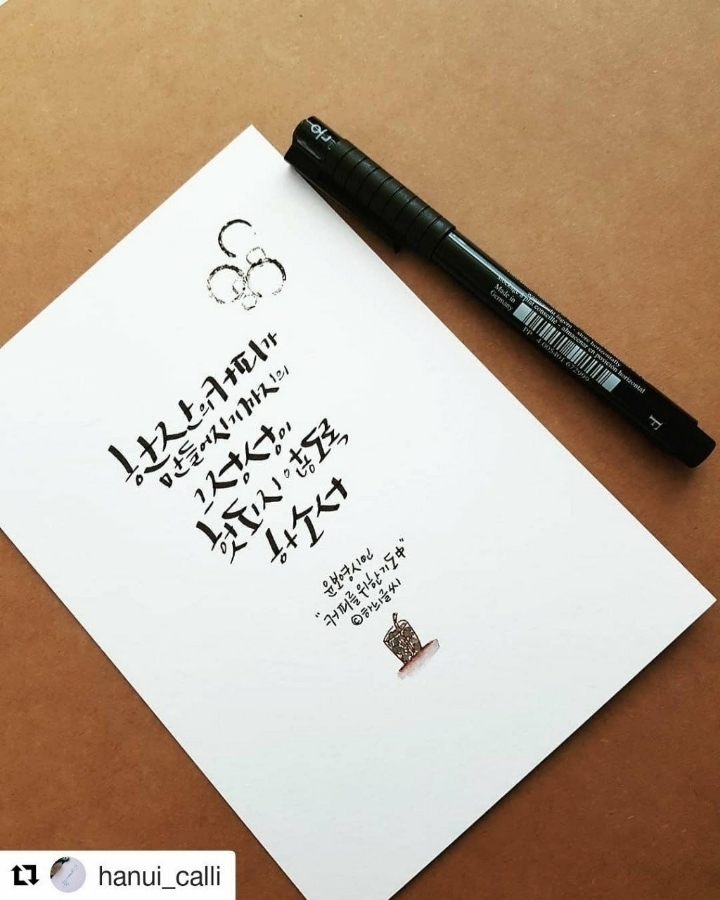 한잔의커피가
만들어지기까지의
그정성이
헛되지 않도록
하소서
윤보영시인
"커피를위한기도中"
©하늬글씨
Made in
Germany
F
hanui_calli